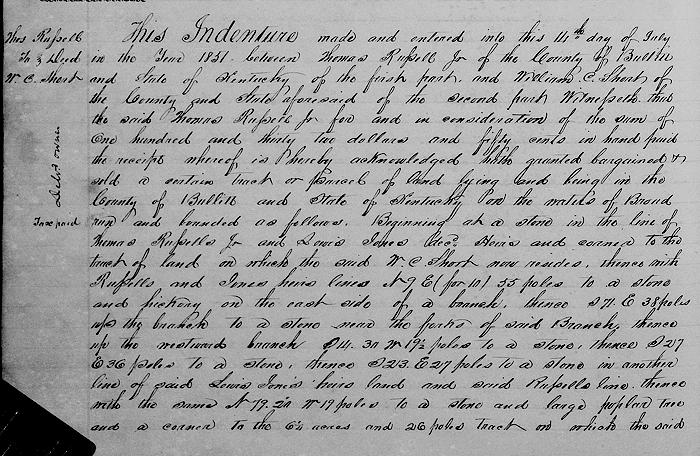 Thos Russell
To } Deed
W. C. Short
Deld owner
Tax paid
This Indenture made and entered into this 14th day of July
in the Year 1851. between Thomas Russell Jr of the County of Bullitt
and State of Kentucky of the first part. and William C. Short of
the County and State aforesaid of the second part Witnesseth that
the said Thomas Russell Jr for and in consideration of the sum of
One hundred and thirty two dollars and fifty cents in hand paid
the receipt whereof is hereby acknowledged hath granted bargained &
sold a certain tract or parcel of land lying and being in the
County of Bullitt and State of Kentucky on the waters of Broad
run and bounded as follows. Beginning at a stone in the line of
Thomas Russells Jr and Lewis Jones decd. Heirs and corner to the
tract of land on which the said W C Short now resides, thence with
Russells and Jones heirs lines N 9 E (por 10) 55 poles to a stone
and hickory on the east side of a branch, thence S 71 E 38 poles
up the branch to a stone near the forks of said Branch, thence
up the westward branch S 4. 30 W 19½ poles to a stone, thence S 27
E 36 poles to a stone, thence S 23. E 27 poles to a stone in another
line of said Lewis Jones heirs land and said Russells line. thence
with the same N 79. 20 W 19 poles to a stone and large poplar tree
and a corner to the 64 acres and 26 poles tract on which the said